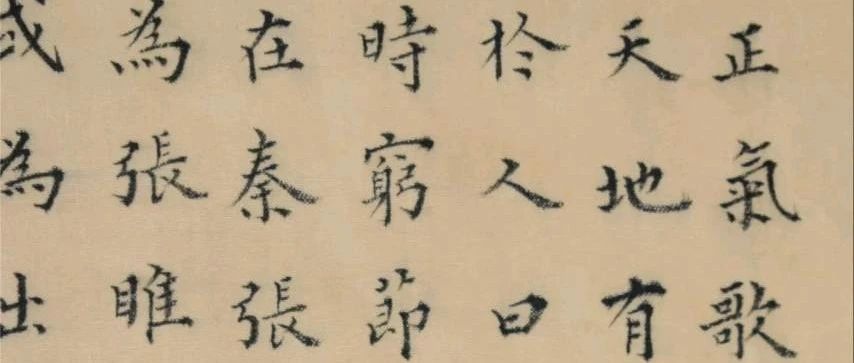 正氣歌
天地有
於人曰
時窮節
在秦張
為張睢
或為出